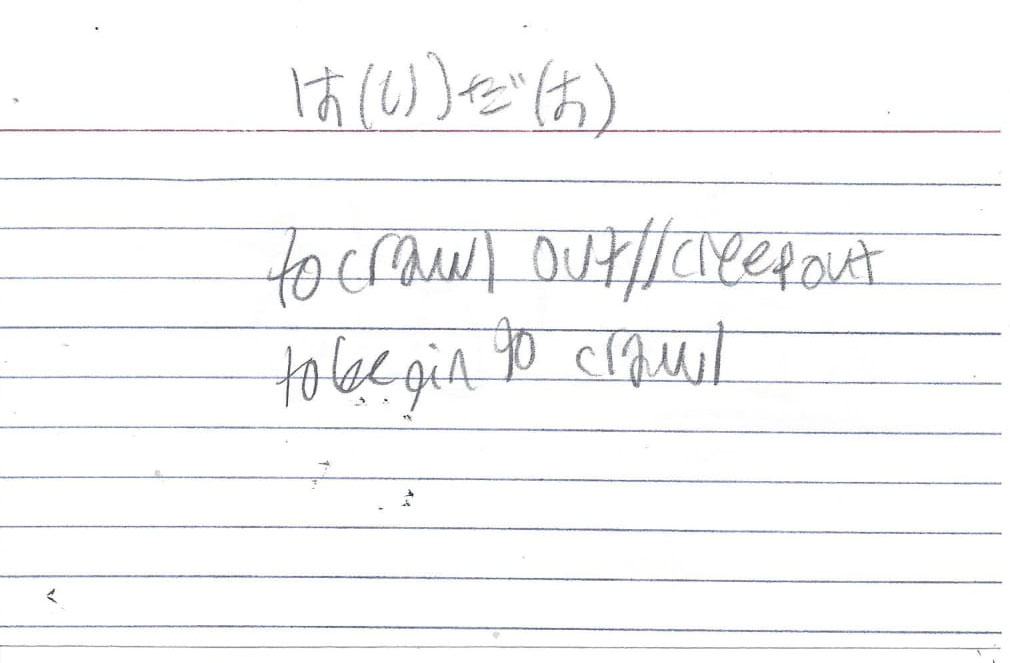 は(い)だ(す)
to crawl out//creep out
to begin to crawl